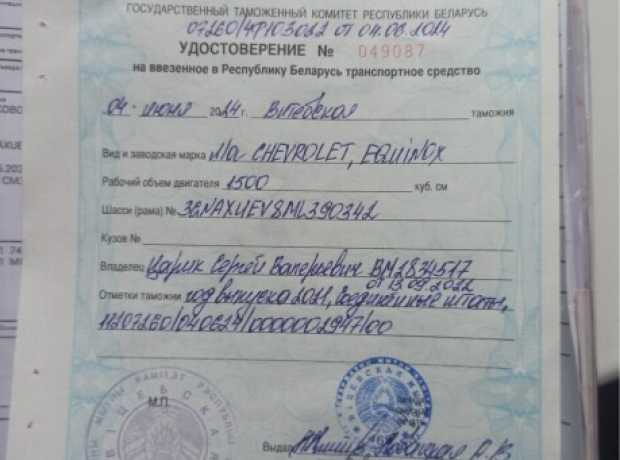 ГОСУДАРСТВЕННЫЙ ТАМОЖЕННЫЙ КОМИТЕТ РЕСПУБЛИКИ БЕЛАРУСЬ
от 04.06.2024
УДОСТОВЕРЕНИЕ № 049087
на ввезенное в Республику Беларусь транспортное средство
04 июня 2024г. Витебская таможня
Вид и заводская марка м/а CHEVROLET, EQUINOX
Рабочий объем двигателя 1500 куб. см
Шасси (рама) № 3GNAXUEV8ML390342
Кузов №
Владелец Царик Сергей Валерьевич BM2834517
от 13.09.2022
Отметки таможни год выпуска 2021, Соединенные штаты,
11207260/040624/0000002947/00
М.П.
Выдал